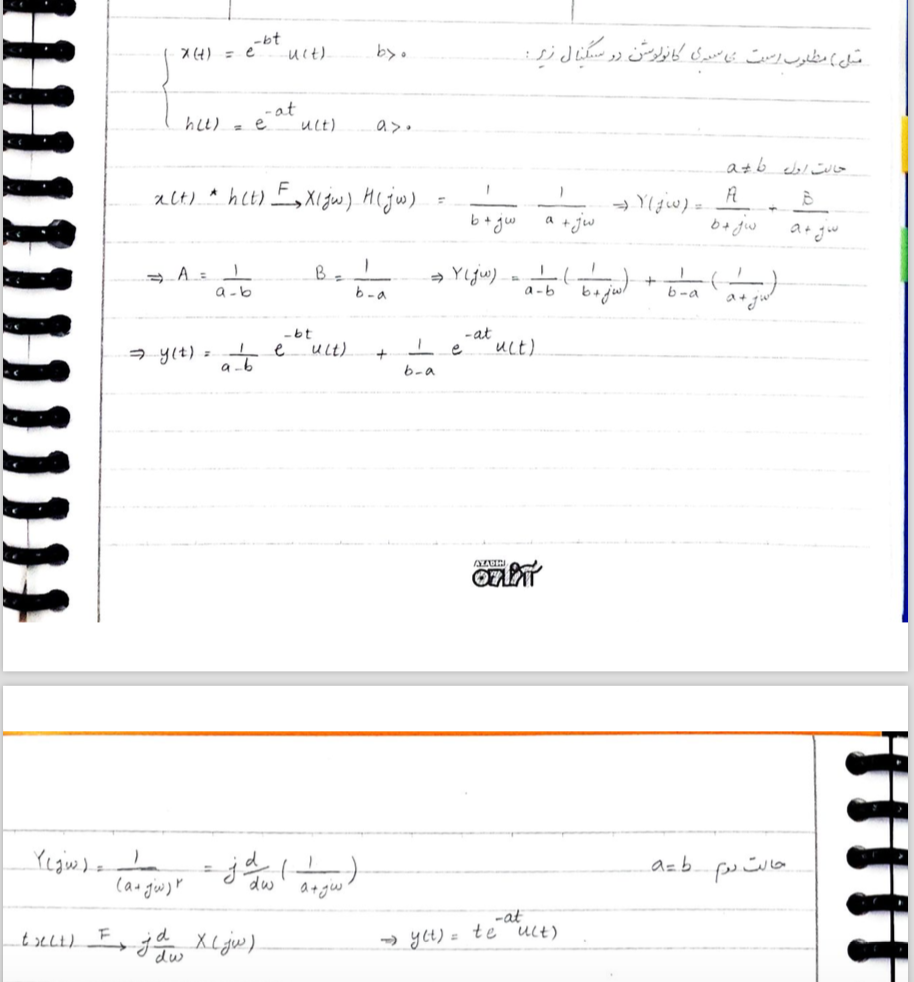 مثال) مطلوب است محاسبه ی کانولوشن دو سیگنال زیر :
x(t) = e^{-bt} u(t)    b>۰
h(t) = e^{-at} u(t)    a>۰
حالت اول a≠b
x(t) * h(t) \xrightarrow{F} X(jω) H(jω) = \frac{1}{b+jω} \frac{1}{a+jω} ⇒ Y(jω) = \frac{A}{b+jω} + \frac{B}{a+jω}
⇒ A = \frac{1}{a-b}    B = \frac{1}{b-a}    ⇒ Y(jω) = \frac{1}{a-b} (\frac{1}{b+jω}) + \frac{1}{b-a} (\frac{1}{a+jω})
⇒ y(t) = \frac{1}{a-b} e^{-bt} u(t) + \frac{1}{b-a} e^{-at} u(t)
AZADEH
حالت دوم a=b
Y(jω) = \frac{1}{(a+jω)^۲} = j \frac{d}{dω} (\frac{1}{a+jω})
tx(t) \xrightarrow{F} j \frac{d}{dω} X(jω)    ⇒ y(t) = te^{-at} u(t)